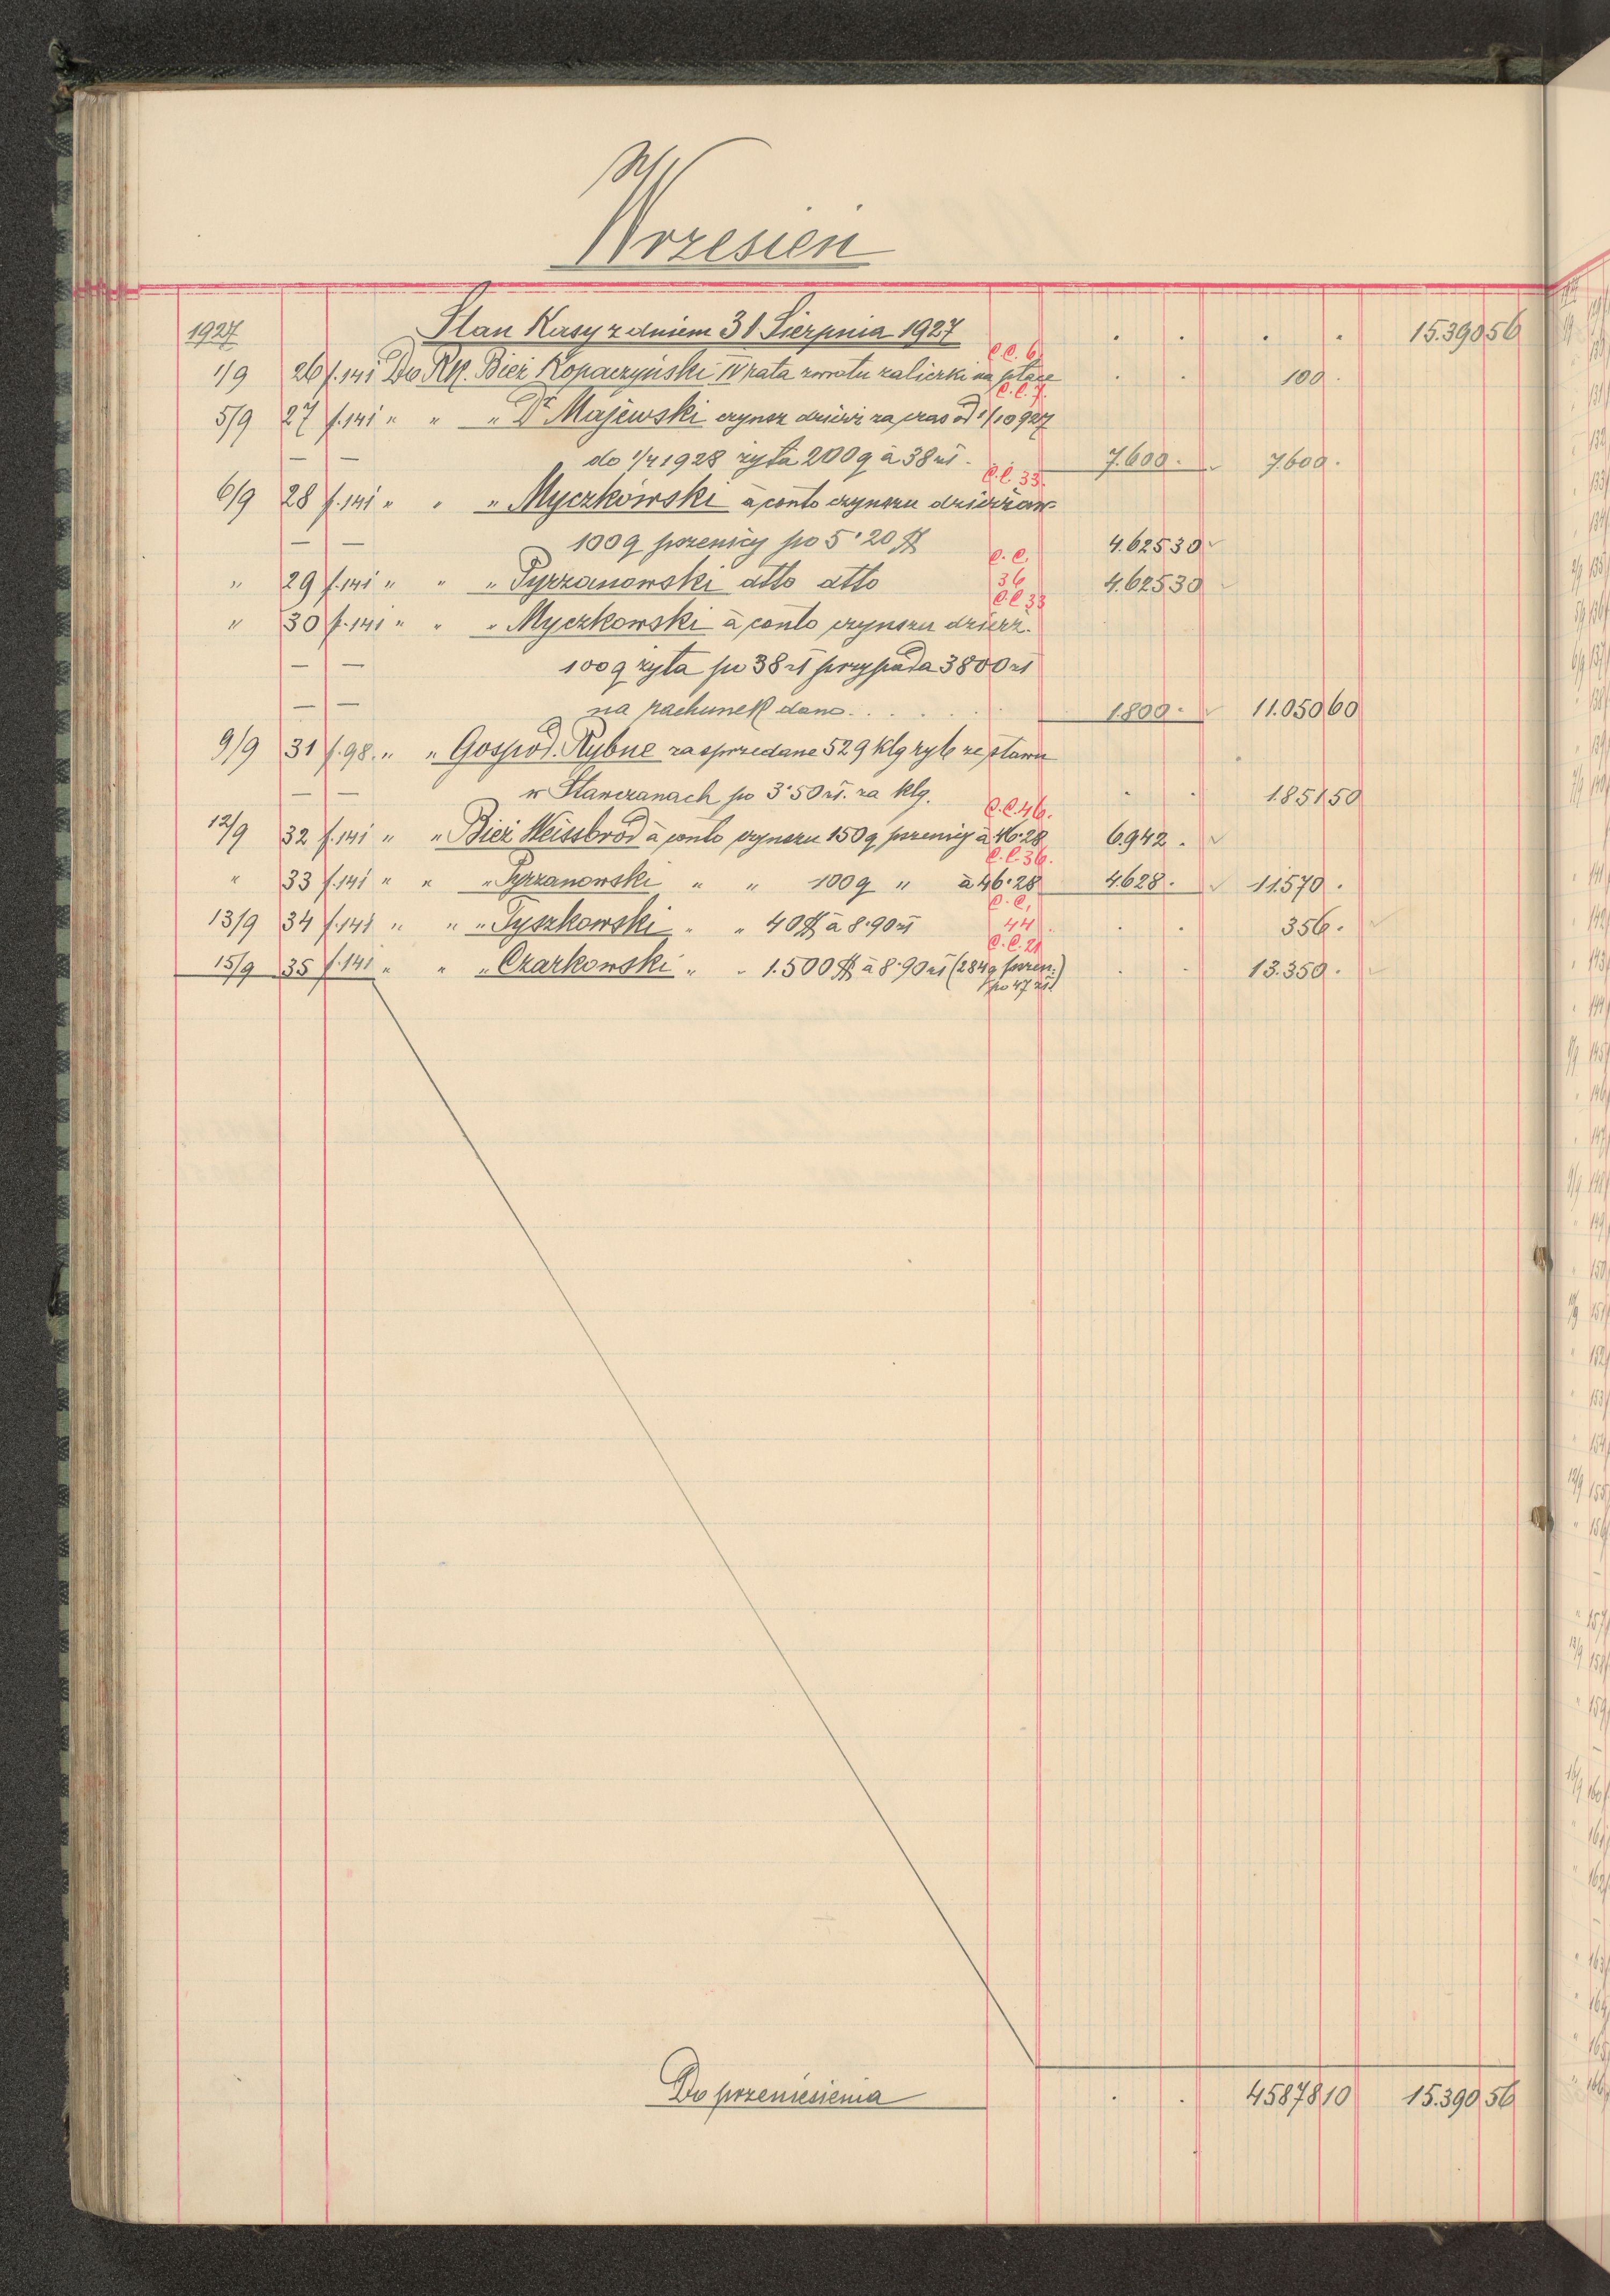 W
Wrzesień
1927 Stan Kasy z dniem 31 Sierpnia 1927 . . . . 15.390 56
C.C. 6.
1/9 26 f.141 Do Rk. Bież Kopaczyński IV rata zwrotu zaliczki na płace . . 100 .
C.C. 7.
5/9 27 f.141 " " " Dr Majewski czynsz dzierż za czas od 1/10 927
— — do 1/4 1928 żyta 200 q à 38 zł. 7.600 . 7.600 .
C.C. 33.
6/9 28 f.141 " " " Myczkowski à conto czynszu dzierżaw
— — 100 q pszenicy po 5·20 $ 4.625 30
C.C.
" 29 f.141 " " " Pyrzanowski dtto dtto 36 4.625 30
C.C. 33
" 30 f.141 " " " Myczkowski à conto czynszu dzierż.
— — 100 q żyta po 38 zł przypada 3800 zł
— — na rachunek dano . . . . . 1.800 . 11.050 60
9/9 31 f.98. " " Gospod. Rybne za sprzedane 529 klg ryb ze stawu
— — w Stawczanach po 3·50 zł. za klg. . . 1.851 50
C.C. 46.
12/9 32 f.141 " " Bież Weissbrod à conto czynszu 150 q pszenicy à 46·28 6.942 .
C.C. 36.
" 33 f.141 " " " Pyrzanowski " " 100 q " à 46·28 4.628 . 11.570 .
C.C.
13/9 34 f.141 " " " Tyszkowski " " 40 $ à 8·90 zł 44 . . 356 .
C.C. 21
15/9 35 f.141 " " " Czarkowski " " 1.500 $ à 8·90 zł (284 q pszen.) . . 13.350 .
po 47 zł.
Do przeniesienia . . 45878 10 15.390 56